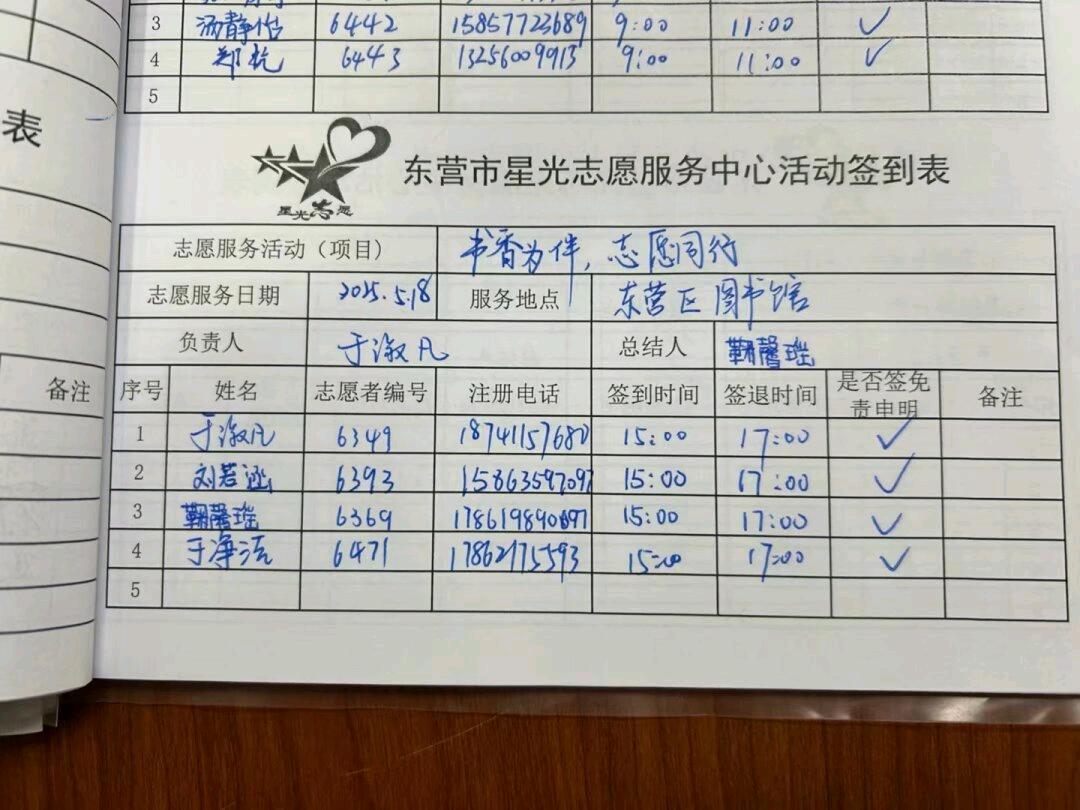 3 汤静怡 6442 15857723689 9:00 11:00 ✓
4 郑乾 6443 13256009913 9:00 11:00 ✓
5
表
星光志愿
东营市星光志愿服务中心活动签到表
志愿服务活动（项目） 书香为伴，志愿同行
志愿服务日期 2025.5.18 服务地点 东营区图书馆
负责人 于淑凡 总结人 靳馨瑶
备注
序号 姓名 志愿者编号 注册电话 签到时间 签退时间 是否签免责申明 备注
1 于淑凡 6349 18741157680 15:00 17:00 ✓
2 刘若涵 6393 15863597097 15:00 17:00 ✓
3 靳馨瑶 6369 15:00 17:00 ✓
4 于净洁 6471 17862175593 15:00 17:00 ✓
5